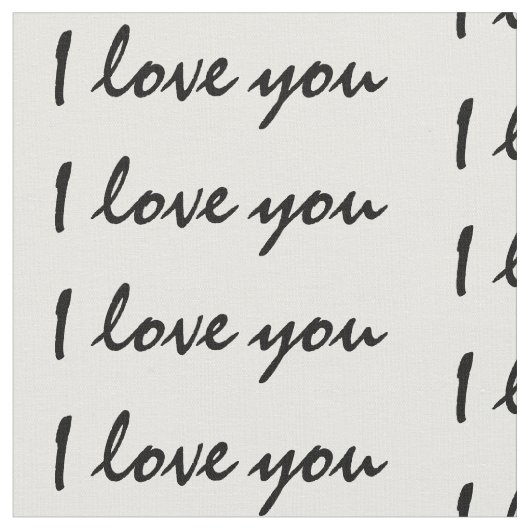 I love you
I love you
I love you
I love you
I l
I l
I l
I l
I